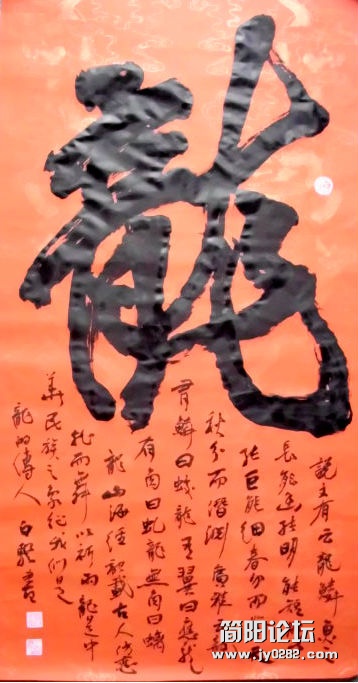 龍
說文有云龍鱗
長能幽能明能
能巨能細春分而
秋分而潛渊廣雅
有鱗曰蛟龍有翼曰應龍
有角曰虬龍無角曰螭
龍山海經記載古人
扎而舞以祈雨龍是中
華民族之象征我們是
龍的傳人
简阳论坛
www.jy0282.com